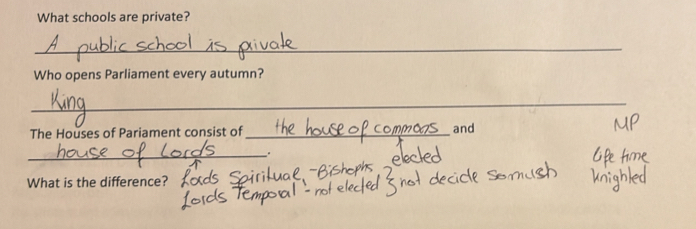 What schools are private?
A public school is private
Who opens Parliament every autumn?
King
The Houses of Pariament consist of the house of commons and
MP
house of Lords. elected
life time
What is the difference? Lords Spiritual, - Bishops
knighted
Lords Temporal - not elected } not decide somush